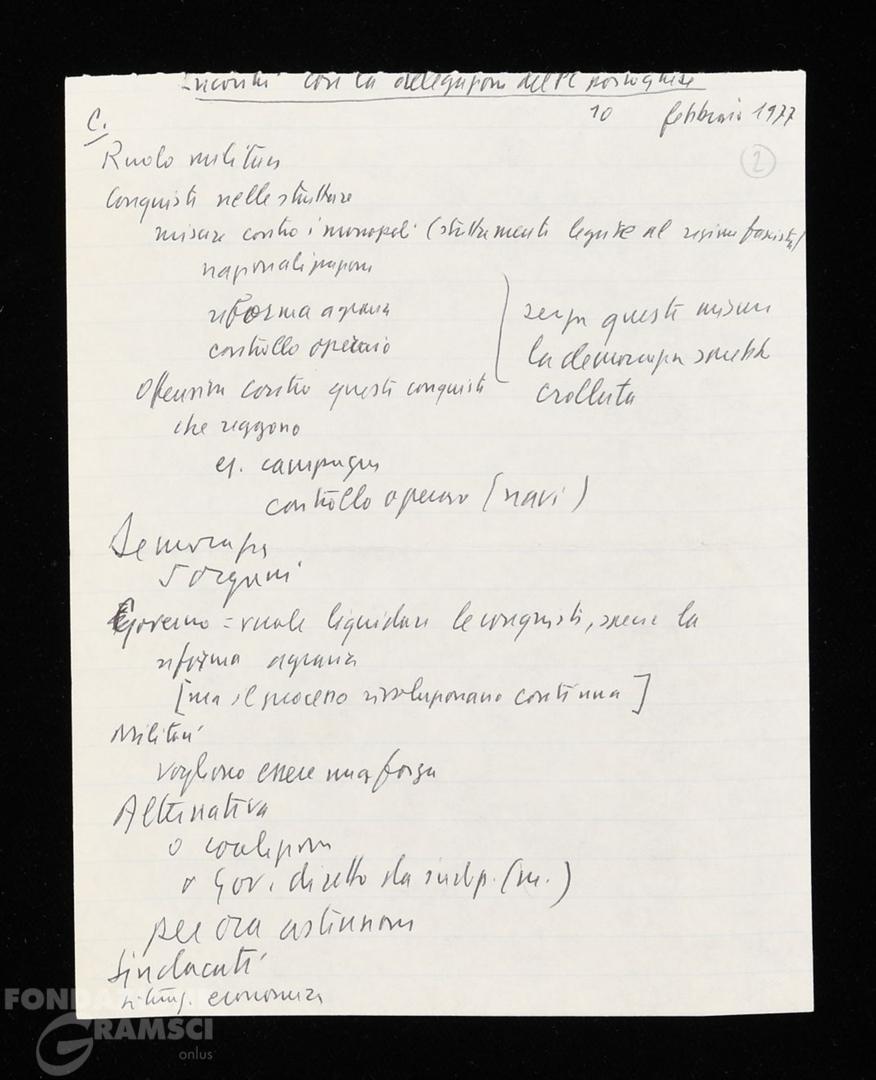 Incontri con la delegazione del PC portoghese
10 febbraio 1977
C.
2
Ruolo militari
Conquiste nelle strutture
misure contro i monopoli (strettamente legate al regime fascista)
nazionalizzazioni
riforma agraria
controllo operaio
senza queste misure
la democrazia sarebbe
crollata
Offensiva contro queste conquiste
che reggono
es. campagne
controllo operaio (navi)
Democrazia
5 organi
Governo = vuole liquidare le conquiste, specie la
riforma agraria
[ma il processo rivoluzionario continua]
Militari
vogliono essere una forza
Alternativa
o coalizione
o Gov. diretto da indip. (m.)
per ora astensione
Sindacati
situaz. economica
FONDAZIONE
GRAMSCI
onlus